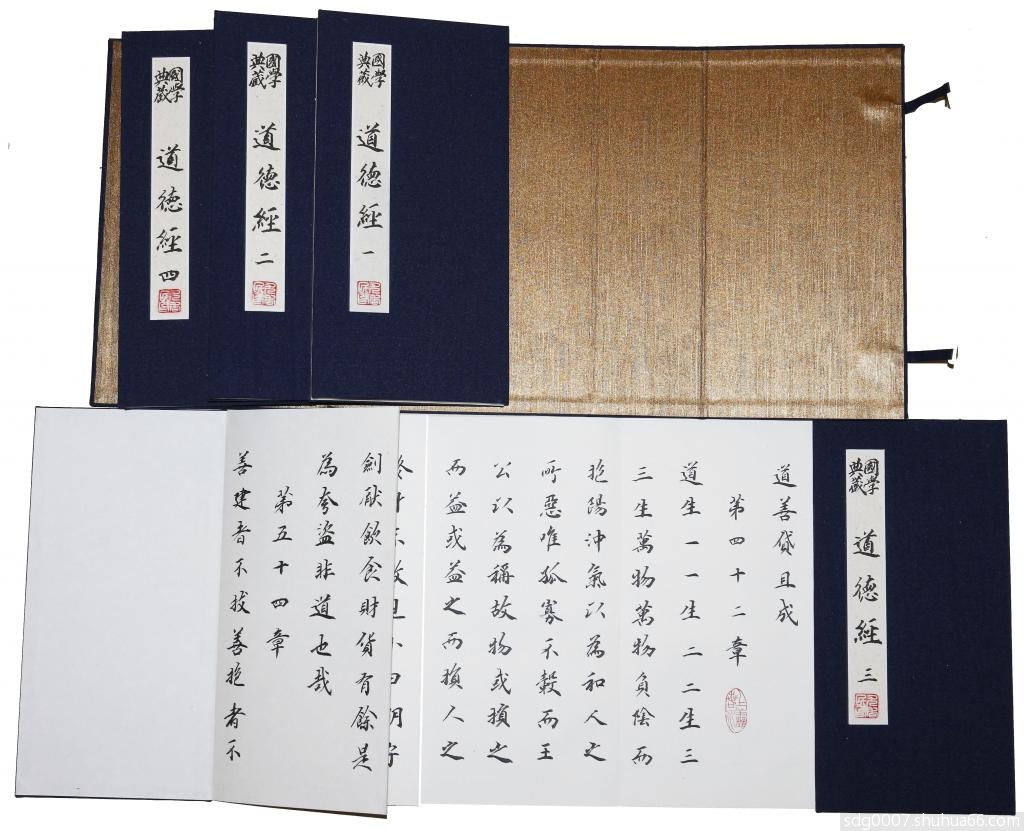 國學典藏
道德經一
國學典藏
道德經二
國學典藏
道德經四
國學典藏
道德經三
道善貸且成
第四十二章
道生一一生二二生三
三生萬物萬物負陰而
抱陽沖氣以為和人之
所惡唯孤寡不轂而王
公以為稱故物或損之
而益或益之而損人之
劍厭飲食財貨有餘是
為夸盜非道也哉
第五十四章
善建者不拔善抱者不
sdg0007.shuhua66.com